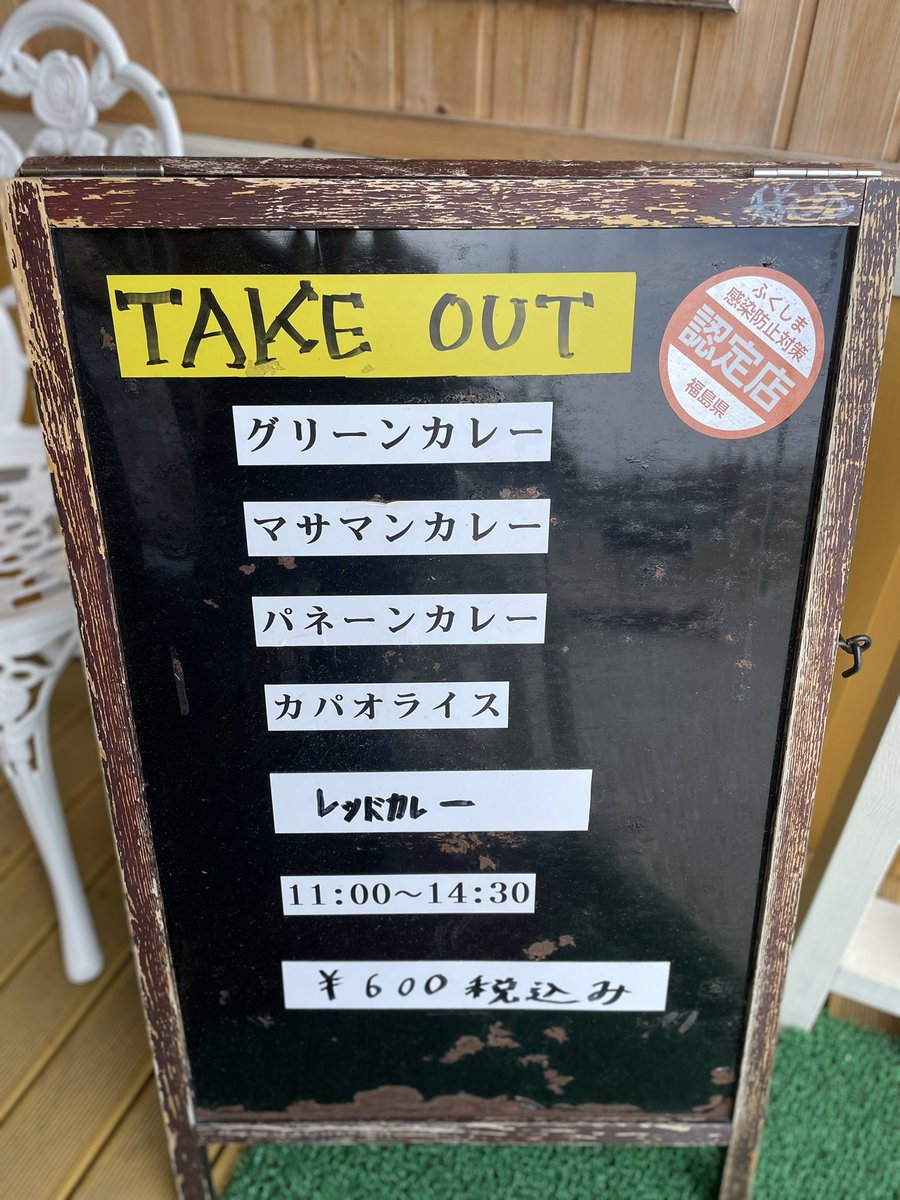 TAKE OUT
ふくしま
感染防止対策
認定店
福島県
グリーンカレー
マサマンカレー
パネーンカレー
カパオライス
レッドカレー
11:00～14:30
￥600税込み